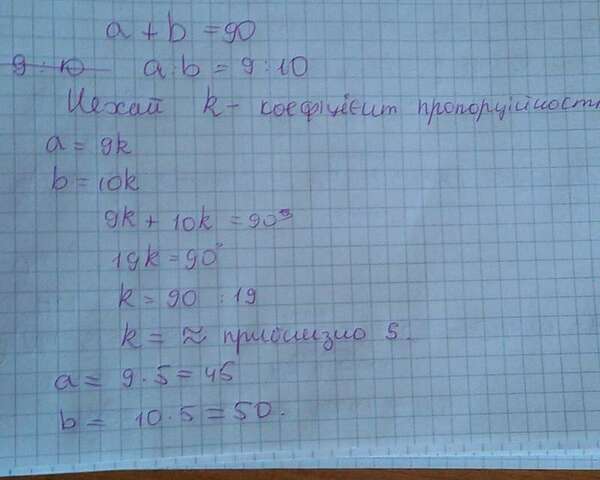 a + b = 90
9 : 10 a : b = 9 : 10
Нехай k - коефіцієнт пропорційност
a = 9k
b = 10k
9k + 10k = 90°
19k = 90°
k = 90 : 19
k = ≈ приблизно 5.
a = 9 · 5 = 45
b = 10 · 5 = 50.